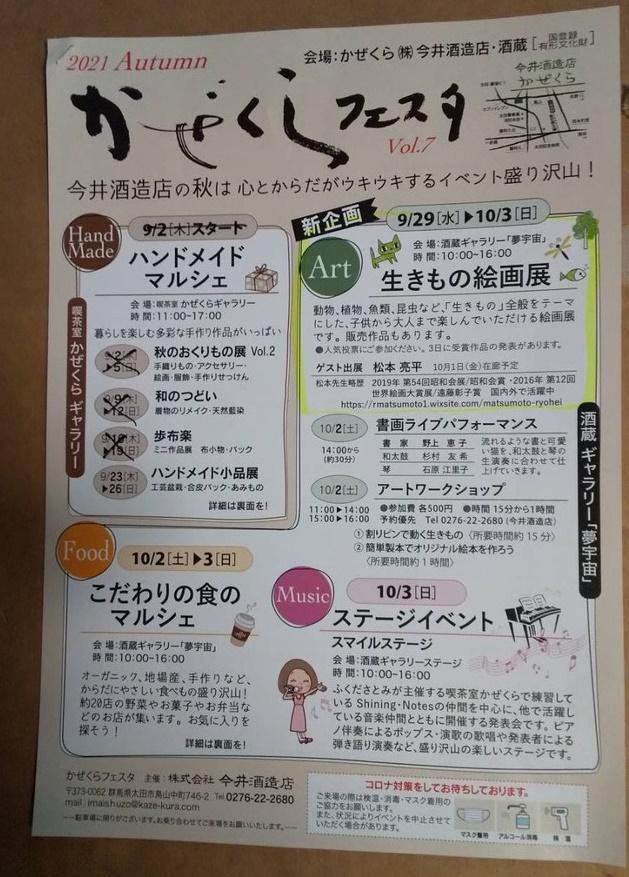 2021 Autumn
会場:かぜくら㈱今井酒造店・酒蔵[国登録有形文化財]
かぜくらフェスタ
Vol.7
今井酒造店
かぜくら
今井酒造店の秋は 心とからだがウキウキするイベント盛り沢山!
Hand Made
9/2[木]スタート
ハンドメイド
マルシェ
会 場:喫茶室 かぜくらギャラリー
時 間:11:00~17:00
暮らしを楽しむ多彩な手作り作品がいっぱい
喫茶室 かぜくら ギャラリー
秋のおくりもの展 Vol.2
手織りもの・アクセサリー・
絵画・服飾・手作りせっけん
和のつどい
着物のリメイク・天然藍染
歩布楽
ミニ作品展 布小物・バック
9/23[木]
▶26[日]
ハンドメイド小品展
工芸盆栽・合皮バック・あみもの
詳細は裏面を!
新企画
9/29[水]▶10/3[日]
Art
会 場:酒蔵ギャラリー「夢宇宙」
時 間:10:00~16:00
生きもの絵画展
動物、植物、魚類、昆虫など、「生きもの」全般をテーマ
にした、子供から大人まで楽しんでいただける絵画展
です。販売作品もあります。
●人気投票にご参加ください。3日に受賞作品の発表があります。
ゲスト出展 松本 亮平 10月1日(金)在廊予定
松本先生略歴 2019年 第54回昭和会展/昭和会賞・2016年 第12回
世界絵画大賞展/遠藤彰子賞 国内外で活躍中
https://rmatsumoto1.wixsite.com/matsumoto-ryohei
10/2[土]
14:00から
(約30分)
書画ライブパフォーマンス
書 家 野上 恵子
和太鼓 杉村 友希
琴 石原 江里子
流れるような書と可愛
い猫を、和太鼓と琴の
生演奏に合わせて仕
上げていきます。
10/2[土]
アートワークショップ
11:00▶14:00
15:00▶16:00
●参加費 各500円 ●時間 15分から1時間
予約優先 Tel 0276-22-2680(今井酒造店)
① 割りピンで動く生きもの〈所要時間約15分〉
② 簡単製本でオリジナル絵本を作ろう
〈所要時間約1時間〉
酒蔵 ギャラリー「夢宇宙」
Food
10/2[土]▶3[日]
こだわりの食の
マルシェ
会 場:酒蔵ギャラリー「夢宇宙」
時 間:10:00~16:00
オーガニック、地場産、手作りなど、
からだにやさしい食べもの盛り沢山!
約20店の野菜やお菓子やお弁当な
どのお店が集います。お気に入りを
探そう!
詳細は裏面を!
Music
10/3[日]
ステージイベント
スマイルステージ
会 場:酒蔵ギャラリーステージ
時 間:10:00~16:00
ふくださとみが主催する喫茶室かぜくらで練習して
いるShining・Notesの仲間を中心に、他で活躍し
ている音楽仲間とともに開催する発表会です。ピア
ノ伴奏によるポップス・演歌の歌唱や発表者による
弾き語り演奏など、盛り沢山の楽しいステージです。
かぜくらフェスタ 主催:株式会社 今井酒造店
〒373-0062 群馬県太田市鳥山中町746-2 Tel 0276-22-2680
mail : imaishuzo@kaze-kura.com
駐車場に限りがございます。お乗り合わせてご来場をお願いいたします。
コロナ対策をしてお待ちしております。
ご来場の際は検温・消毒・マスク着用の
ご協力をお願いします。
また、状況によりイベントを中止させて
いただく場合があります。
マスク着用
アルコール消毒
検 温